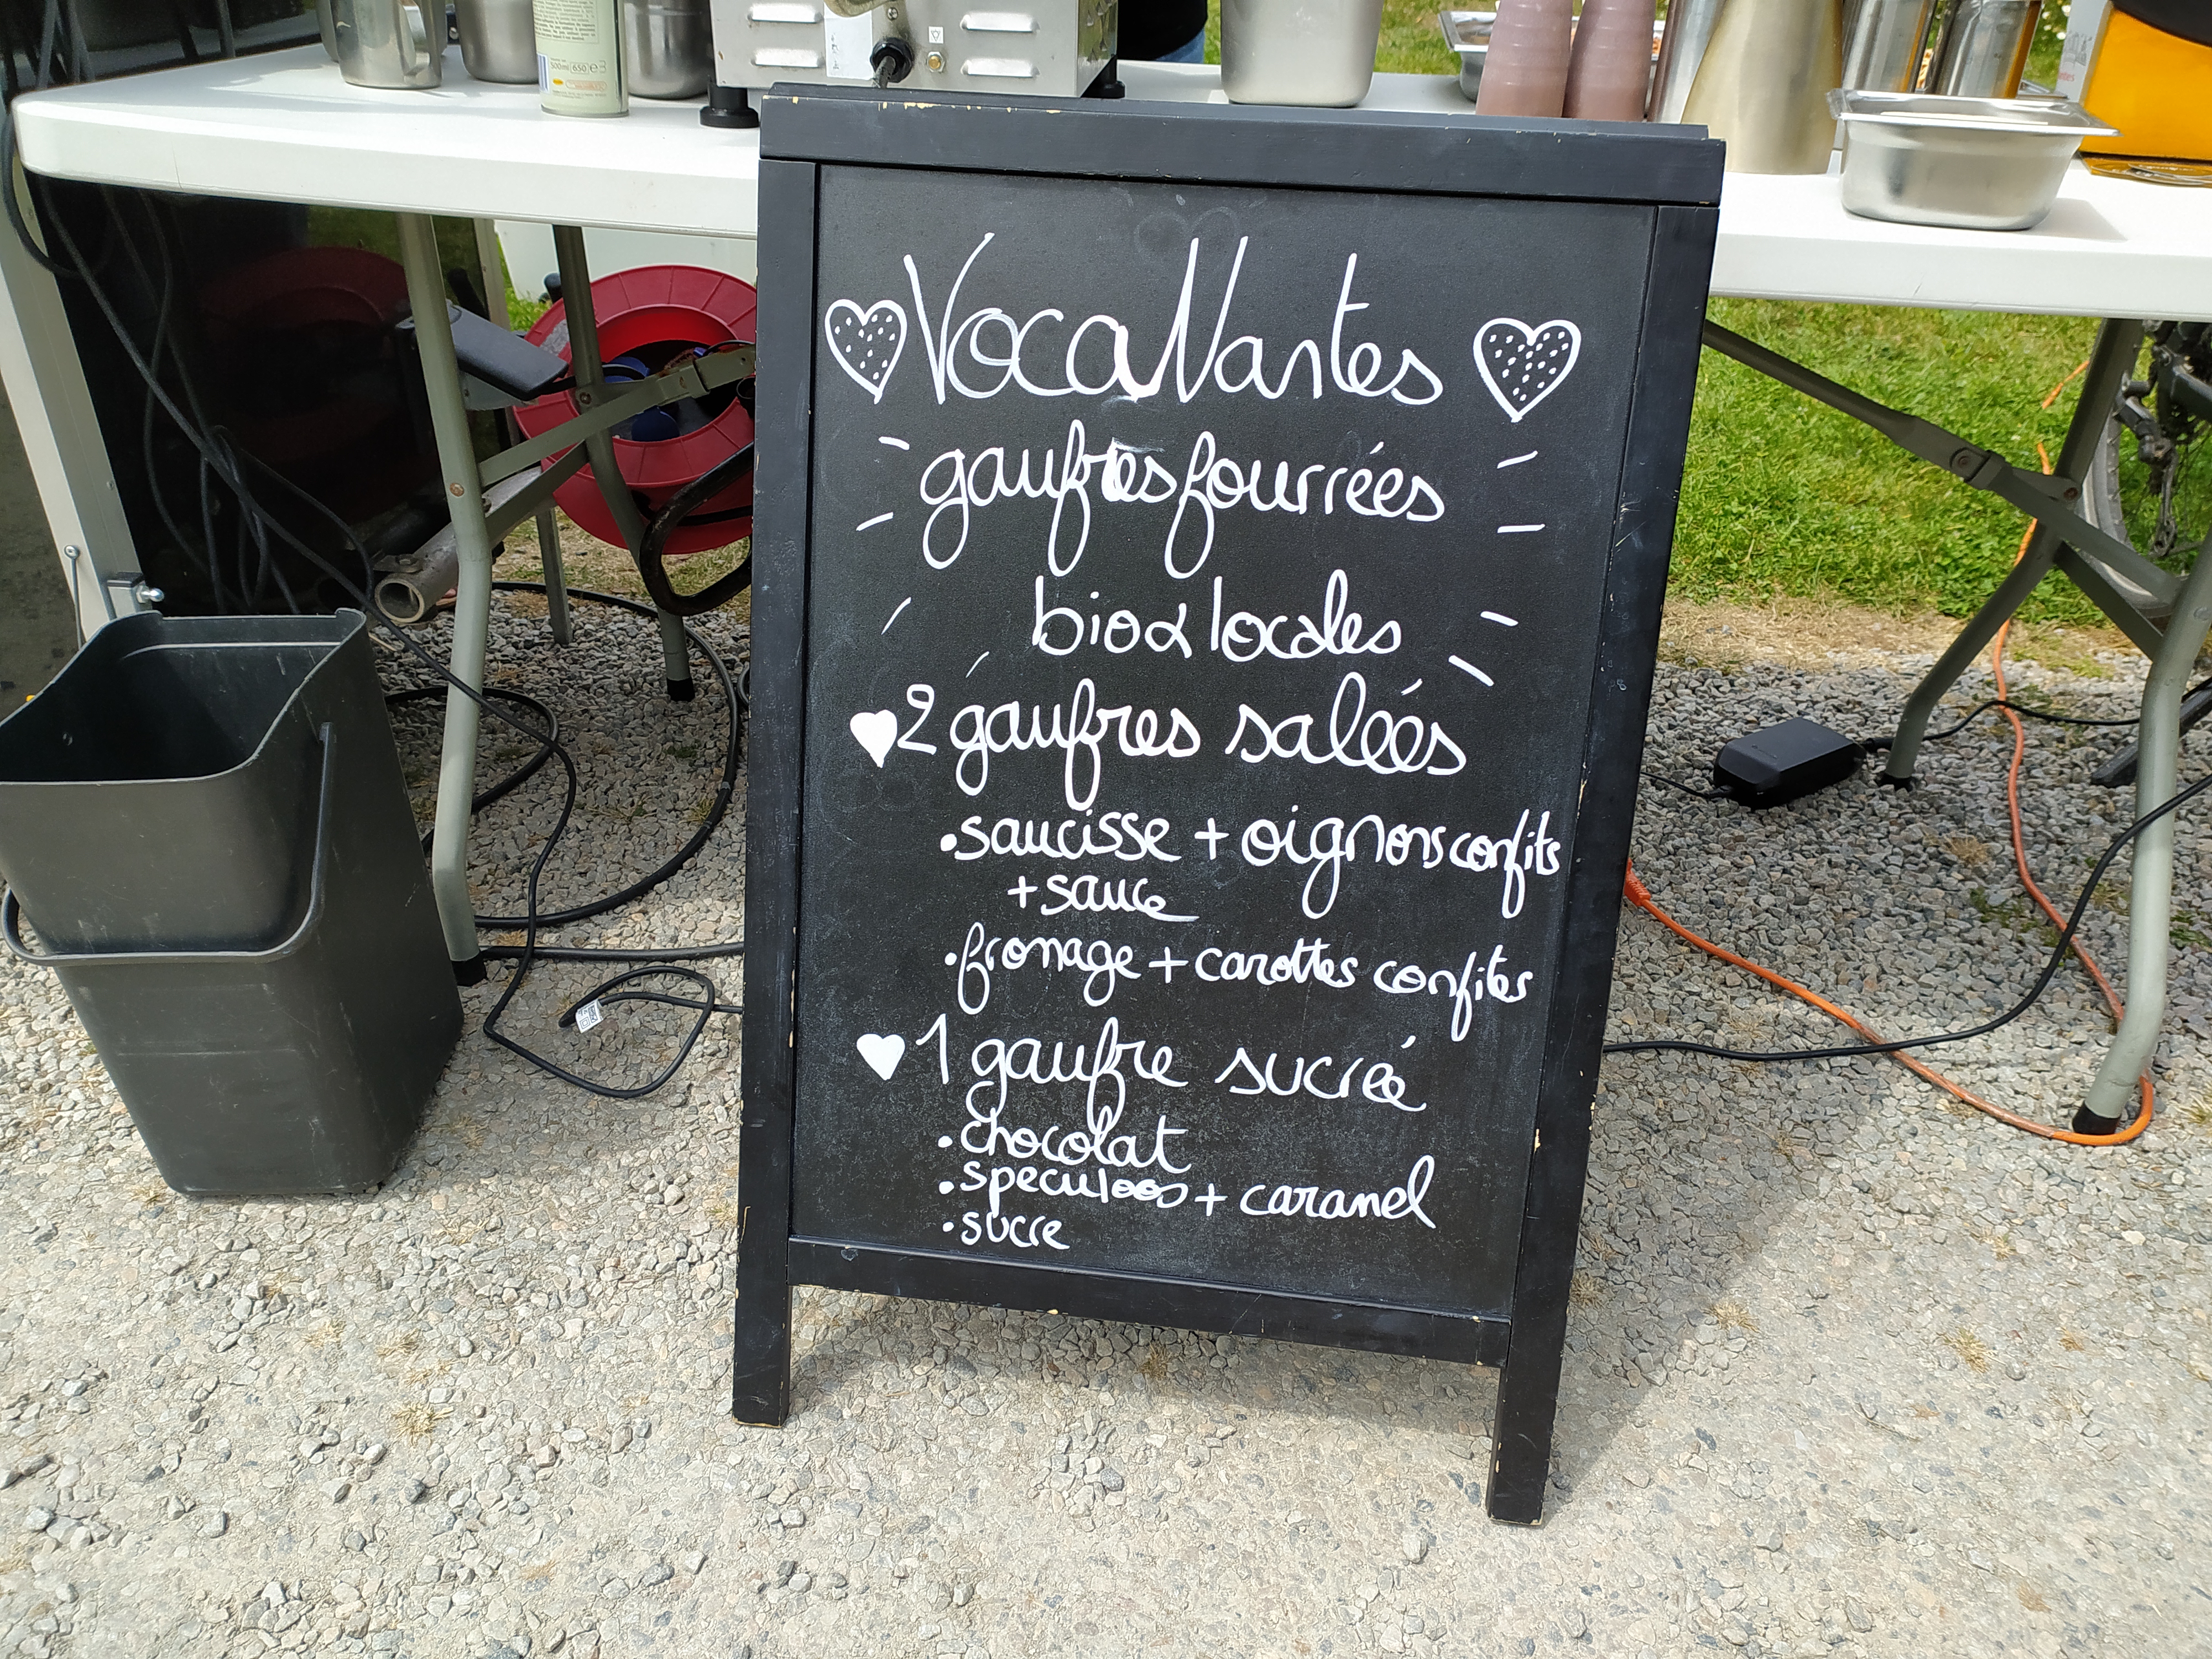 VocaNantes
gaufres fourrées
bio & locales
2 gaufres salées
• saucisse + oignons confits
+ sauce
• fromage + carottes confites
1 gaufre sucrée
• chocolat
• speculoos + caramel
• sucre
500ml 650 e